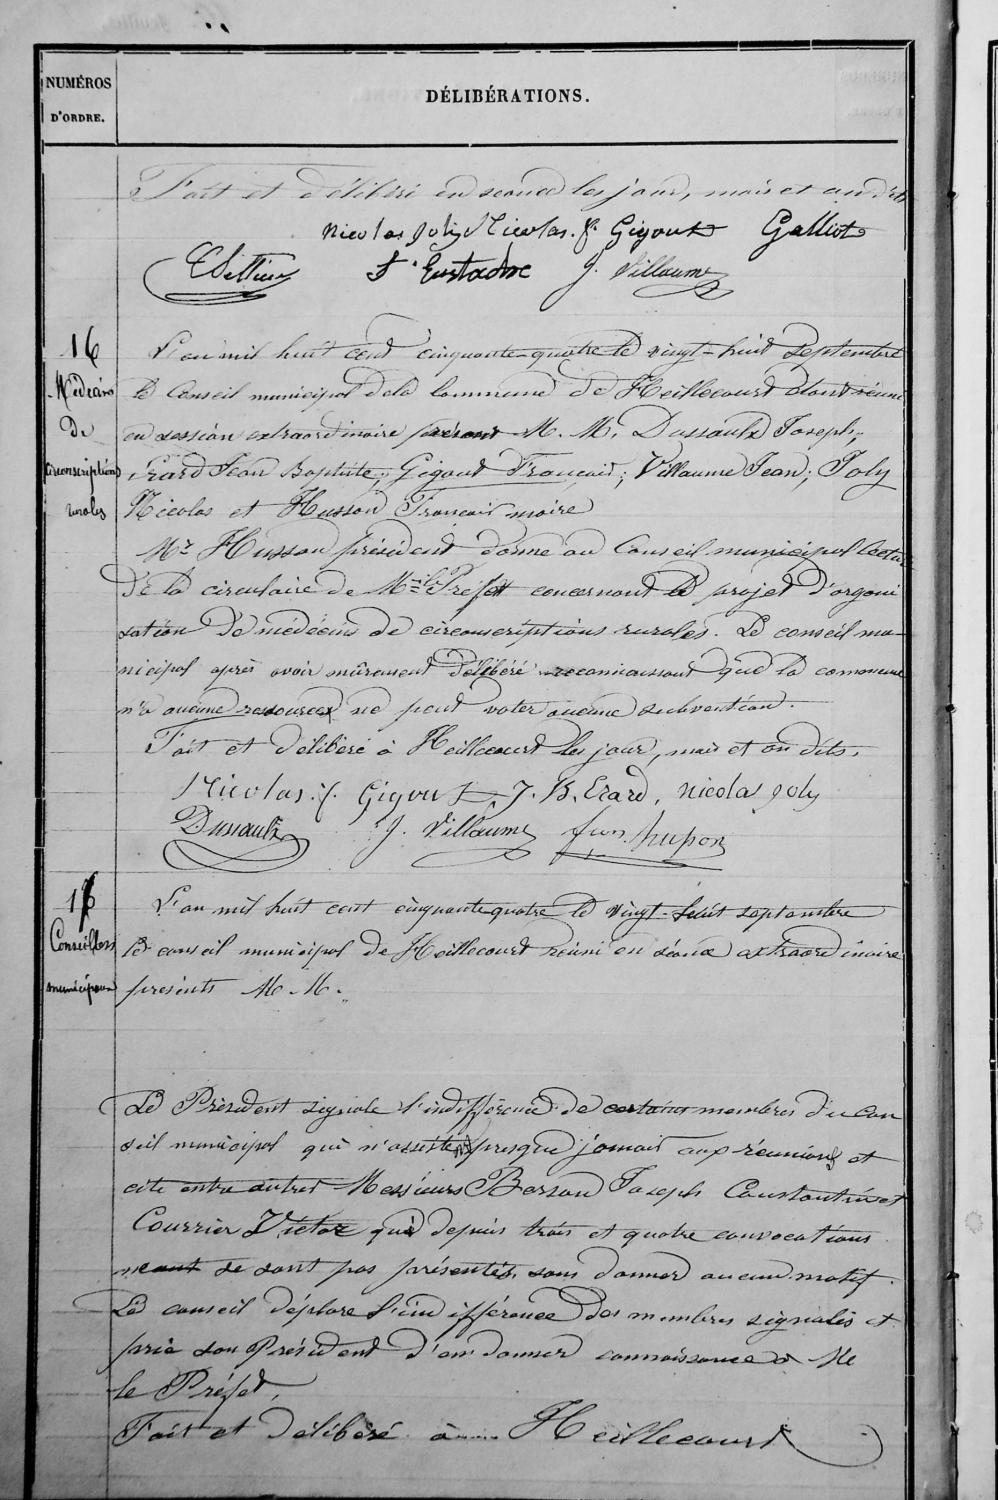 NUMÉROS
D'ORDRE.
DÉLIBÉRATIONS.
Fait et délibéré en séance les jour, mois et an dits
Nicolas Joly Nicolas. f. Gigout Galliot
F. Eustache J. Villaume
16
Médecins
de
circonscriptions
rurales
L'an mil huit cent cinquante-quatre le vingt-huit septembre
le Conseil municipal de la commune de Heillecourt étant réuni
en session extraordinaire présent M. M. Dussaulx Joseph;
Erard Jean Baptiste; Gigout François; Villaume Jean; Joly
Nicolas et Husson François maire
Mr Husson président donne au Conseil municipal lecture
de la circulaire de Mr le Préfet concernant le projet d'organi
sation de médecins de circonscriptions rurales. Le conseil mu-
nicipal après avoir mûrement délibéré reconnaissant que la commune
n'a aucune ressources ne peut voter aucune subvention.
Fait et délibéré à Heillecourt les jour, mois et an dits.
Nicolas. f. Gigout J. B. Erard, Nicolas Joly
Dussaulx J. Villaume fcois husson
17
Conseillers
municipaux
L'an mil huit cent cinquante quatre le vingt-huit septembre
le conseil municipal de Heillecourt réuni en séance extraordinaire
présents M. M.
Le Président signale l'indifférence de certains membres du con
seil municipal qui n'assistent presque jamais aux réunions et
cite entre autres Messieurs Bersou Joseph Constantin et
Courrier Victor qui depuis trois et quatre convocations
ne se sont pas présentés, sans donner aucun motif.
Le conseil déplore l'indifférence des membres signalés et
prie son Président d'en donner connaissance à Mr
le Préfet,
Fait et délibéré à Heillecourt